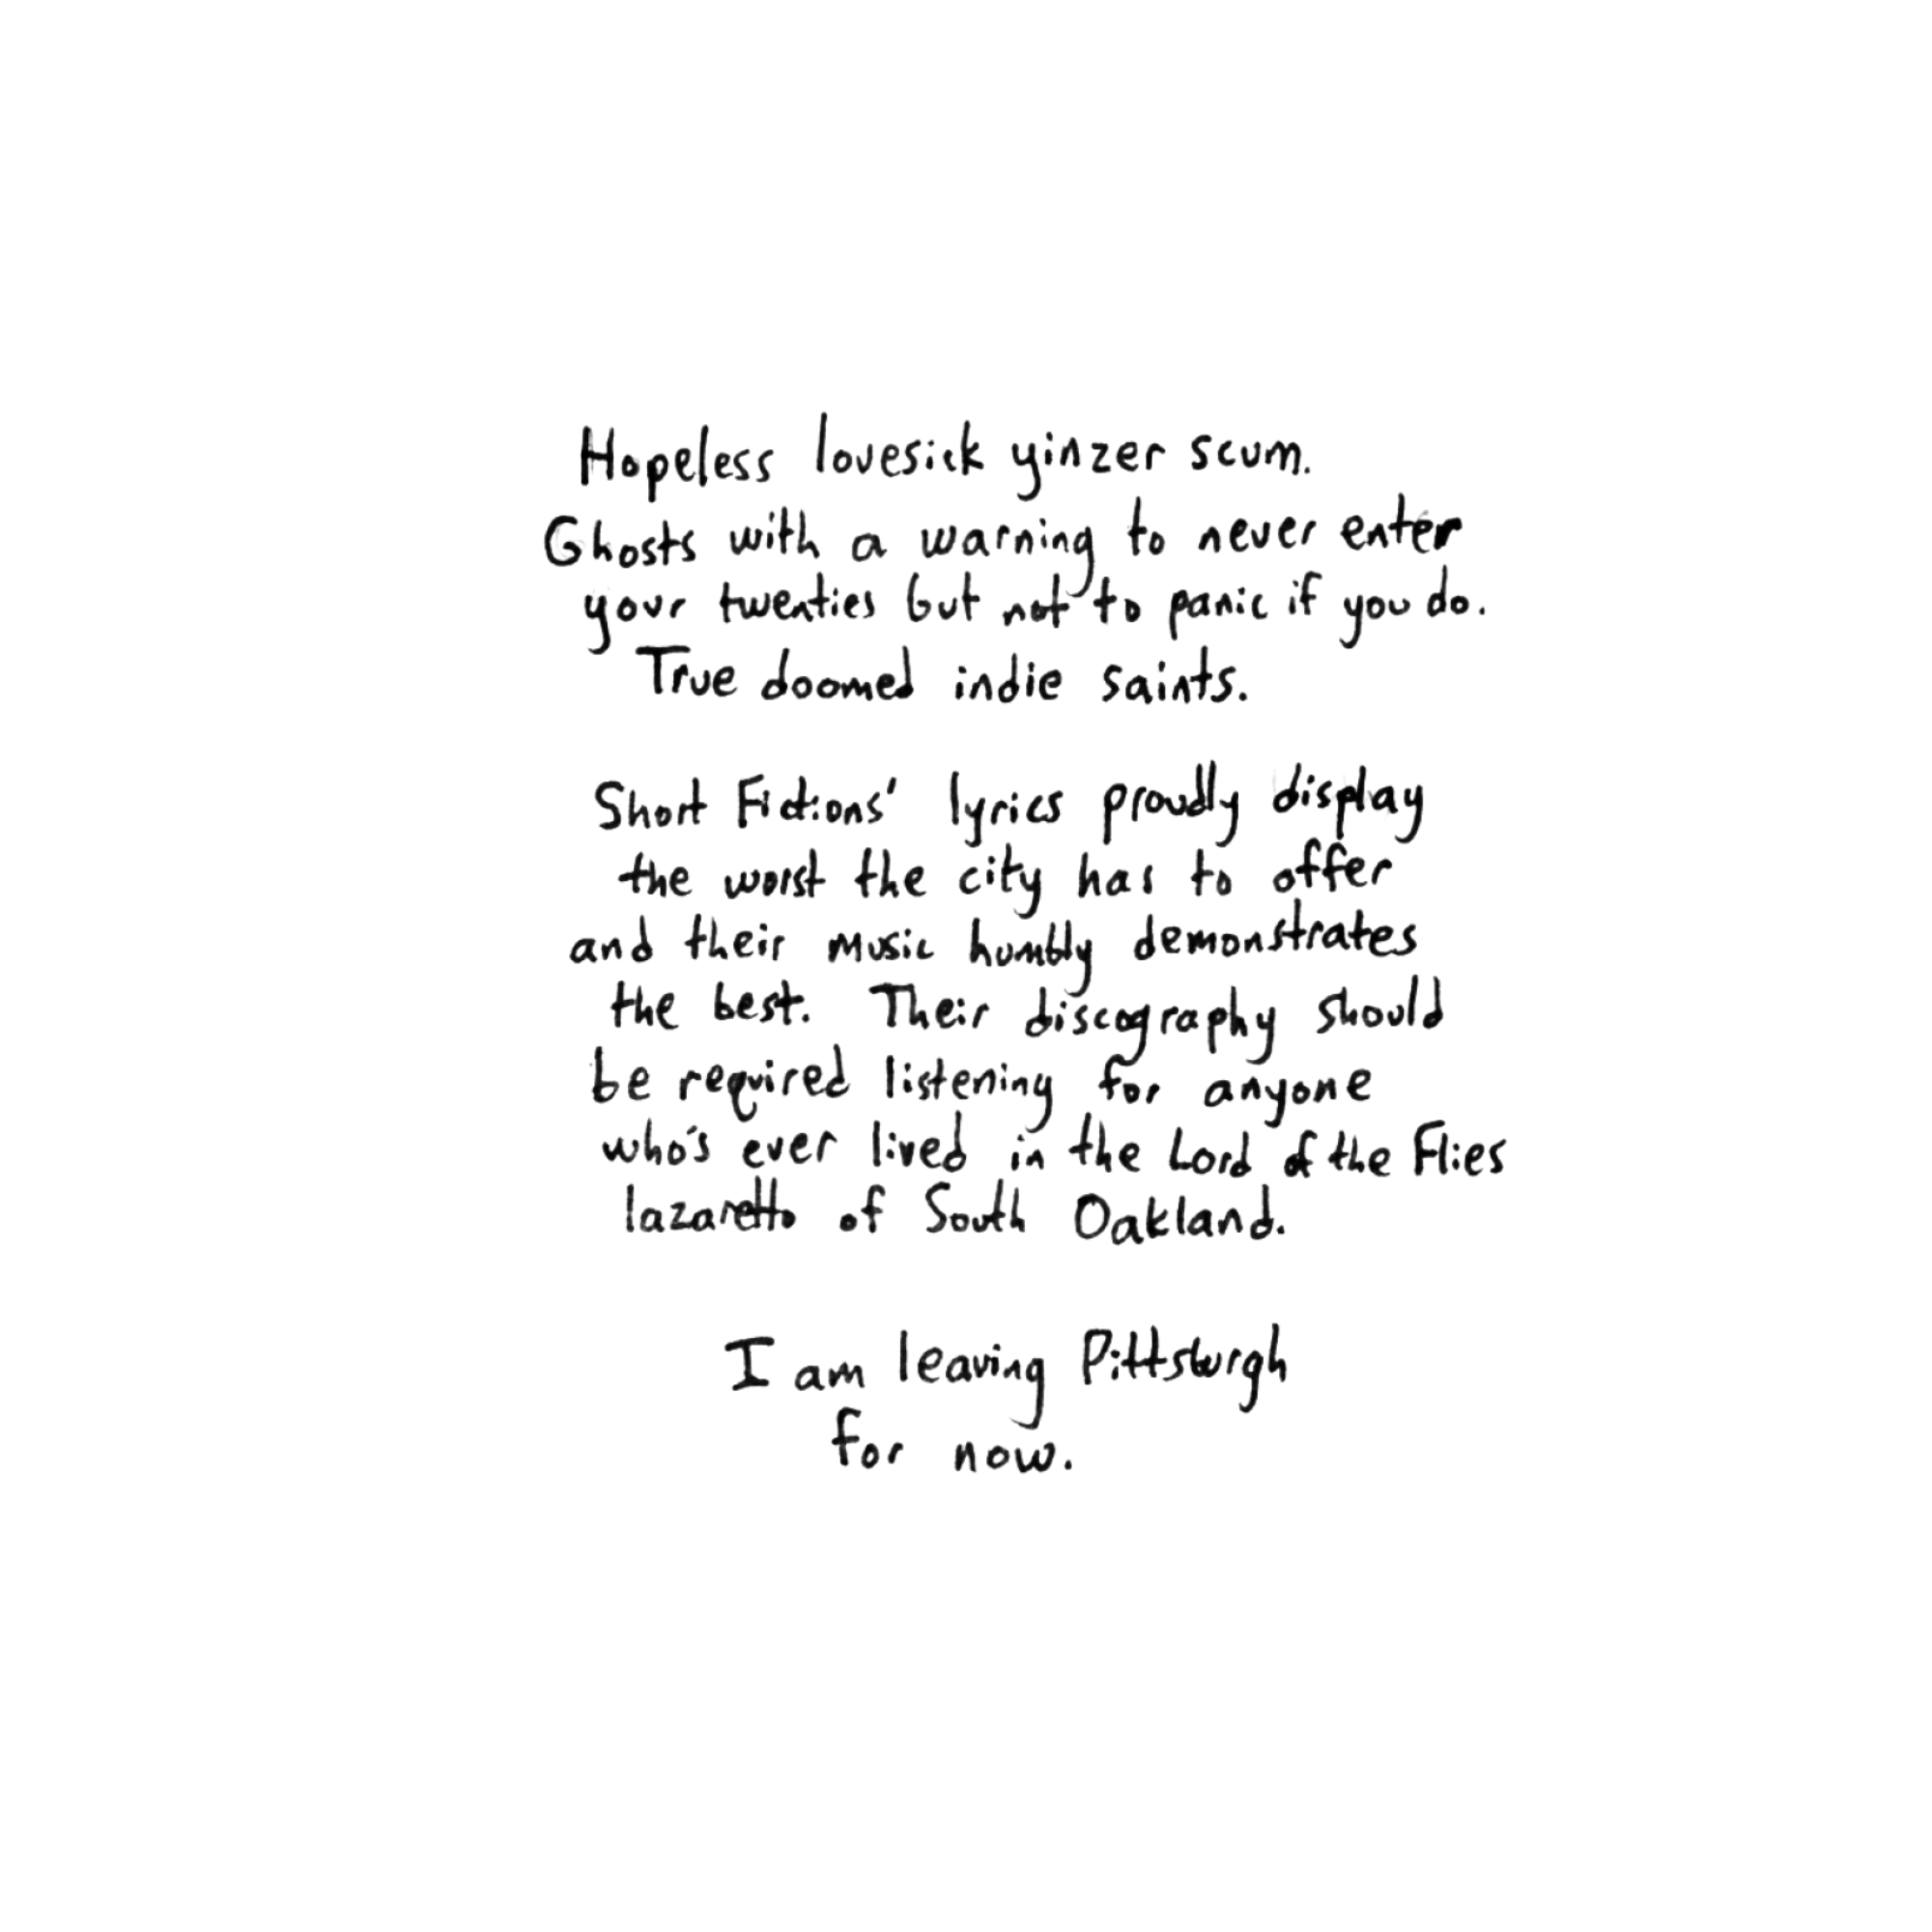 Hopeless lovesick yinzer scum.
Ghosts with a warning to never enter
your twenties but not to panic if you do.
True doomed indie saints.
Short Fictions' lyrics proudly display
the worst the city has to offer
and their music humbly demonstrates
the best. Their discography should
be required listening for anyone
who's ever lived in the Lord of the Flies
lazaretto of South Oakland.
I am leaving Pittsburgh
for now.